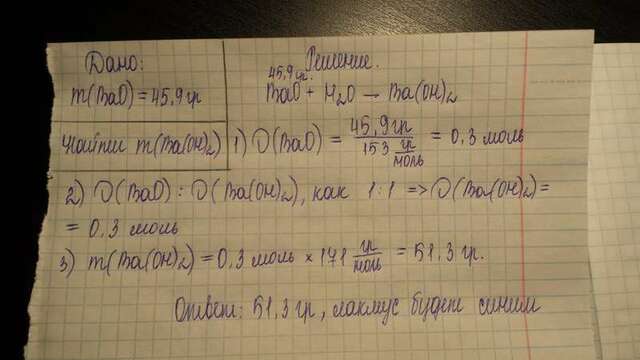 Дано:
m(BaO) = 45,9 гр
Найти m(Ba(OH)₂)
Решение.
45,9 гр.
BaO + H₂O → Ba(OH)₂
1) ν(BaO) = 45,9 гр / 153 гр/моль = 0,3 моль
2) ν(BaO) : ν(Ba(OH)₂), как 1:1 => ν(Ba(OH)₂) =
= 0,3 моль
3) m(Ba(OH)₂) = 0,3 моль × 171 гр/моль = 51,3 гр.
Ответ: 51,3 гр, лакмус будет синим